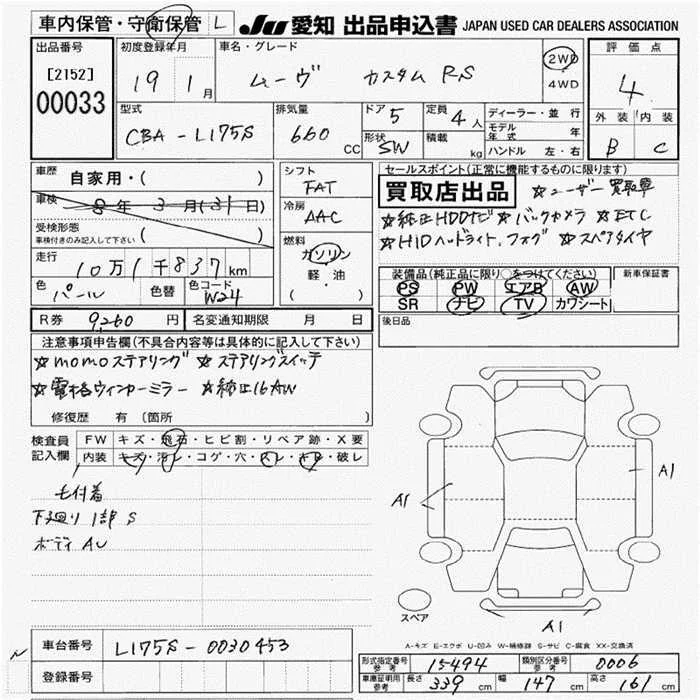 車内保管・守衛保管 L
JU 愛知 出品申込書 JAPAN USED CAR DEALERS ASSOCIATION
出品番号
[2152]
00033
初度登録年月
19 1月
車名・グレード
ムーヴ カスタム RS
2WD
4WD
評価点
4
外装 内装
B C
型式
CBA - L175S
排気量
660 CC
ドア 5
形状 SW
定員 4人
積載 kg
ディーラー・並行
モデル年式 年
ハンドル 左・右
車歴
自家用・( )
車検
8年 3月(31日)
受検形態
車検付きのみ記入して下さい ( )
走行
10万1千837km
色 パール
色替
色コード W24
シフト
FAT
冷房
AAC
燃料
ガソリン
軽・油
( )
セールスポイント(正常に機能するものに限ります)
買取店出品 ☆ユーザー買取車
☆純正HDDナビ ☆バックカメラ ☆ETC
☆HIDヘッドライト,フォグ ☆スペアタイヤ
装備品(純正品に限り○をつけてください)
PS PW エアB AW
SR ナビ TV カワシート
新車保証書
後日品
R券 9,260円
名変通知期限 月 日
注意事項申告欄(不具合内容等は具体的に記入して下さい)
☆momoステアリング ☆ステアリングスイッチ
☆電格ウィンカーミラー ☆純正16AW
修復歴 有 (箇所
検査員記入欄
FW キズ・飛石・ヒビ割・リペア跡・X要
内装 キズ・汚レ・コゲ・穴・スレ・キレ・破レ
毛付着
下廻り 1部 S
ボディ AU
A1
A1
A1
スペア
A-キズ E-エクボ U-凹み W-補修跡 S-サビ C-腐食 XX-交換済
車台番号
L175S-0030453
登録番号
型式指定番号 参考 15494
類別区分番号 参考 0006
車庫証明用 参考 長さ 339cm 幅 147cm 高さ 161cm